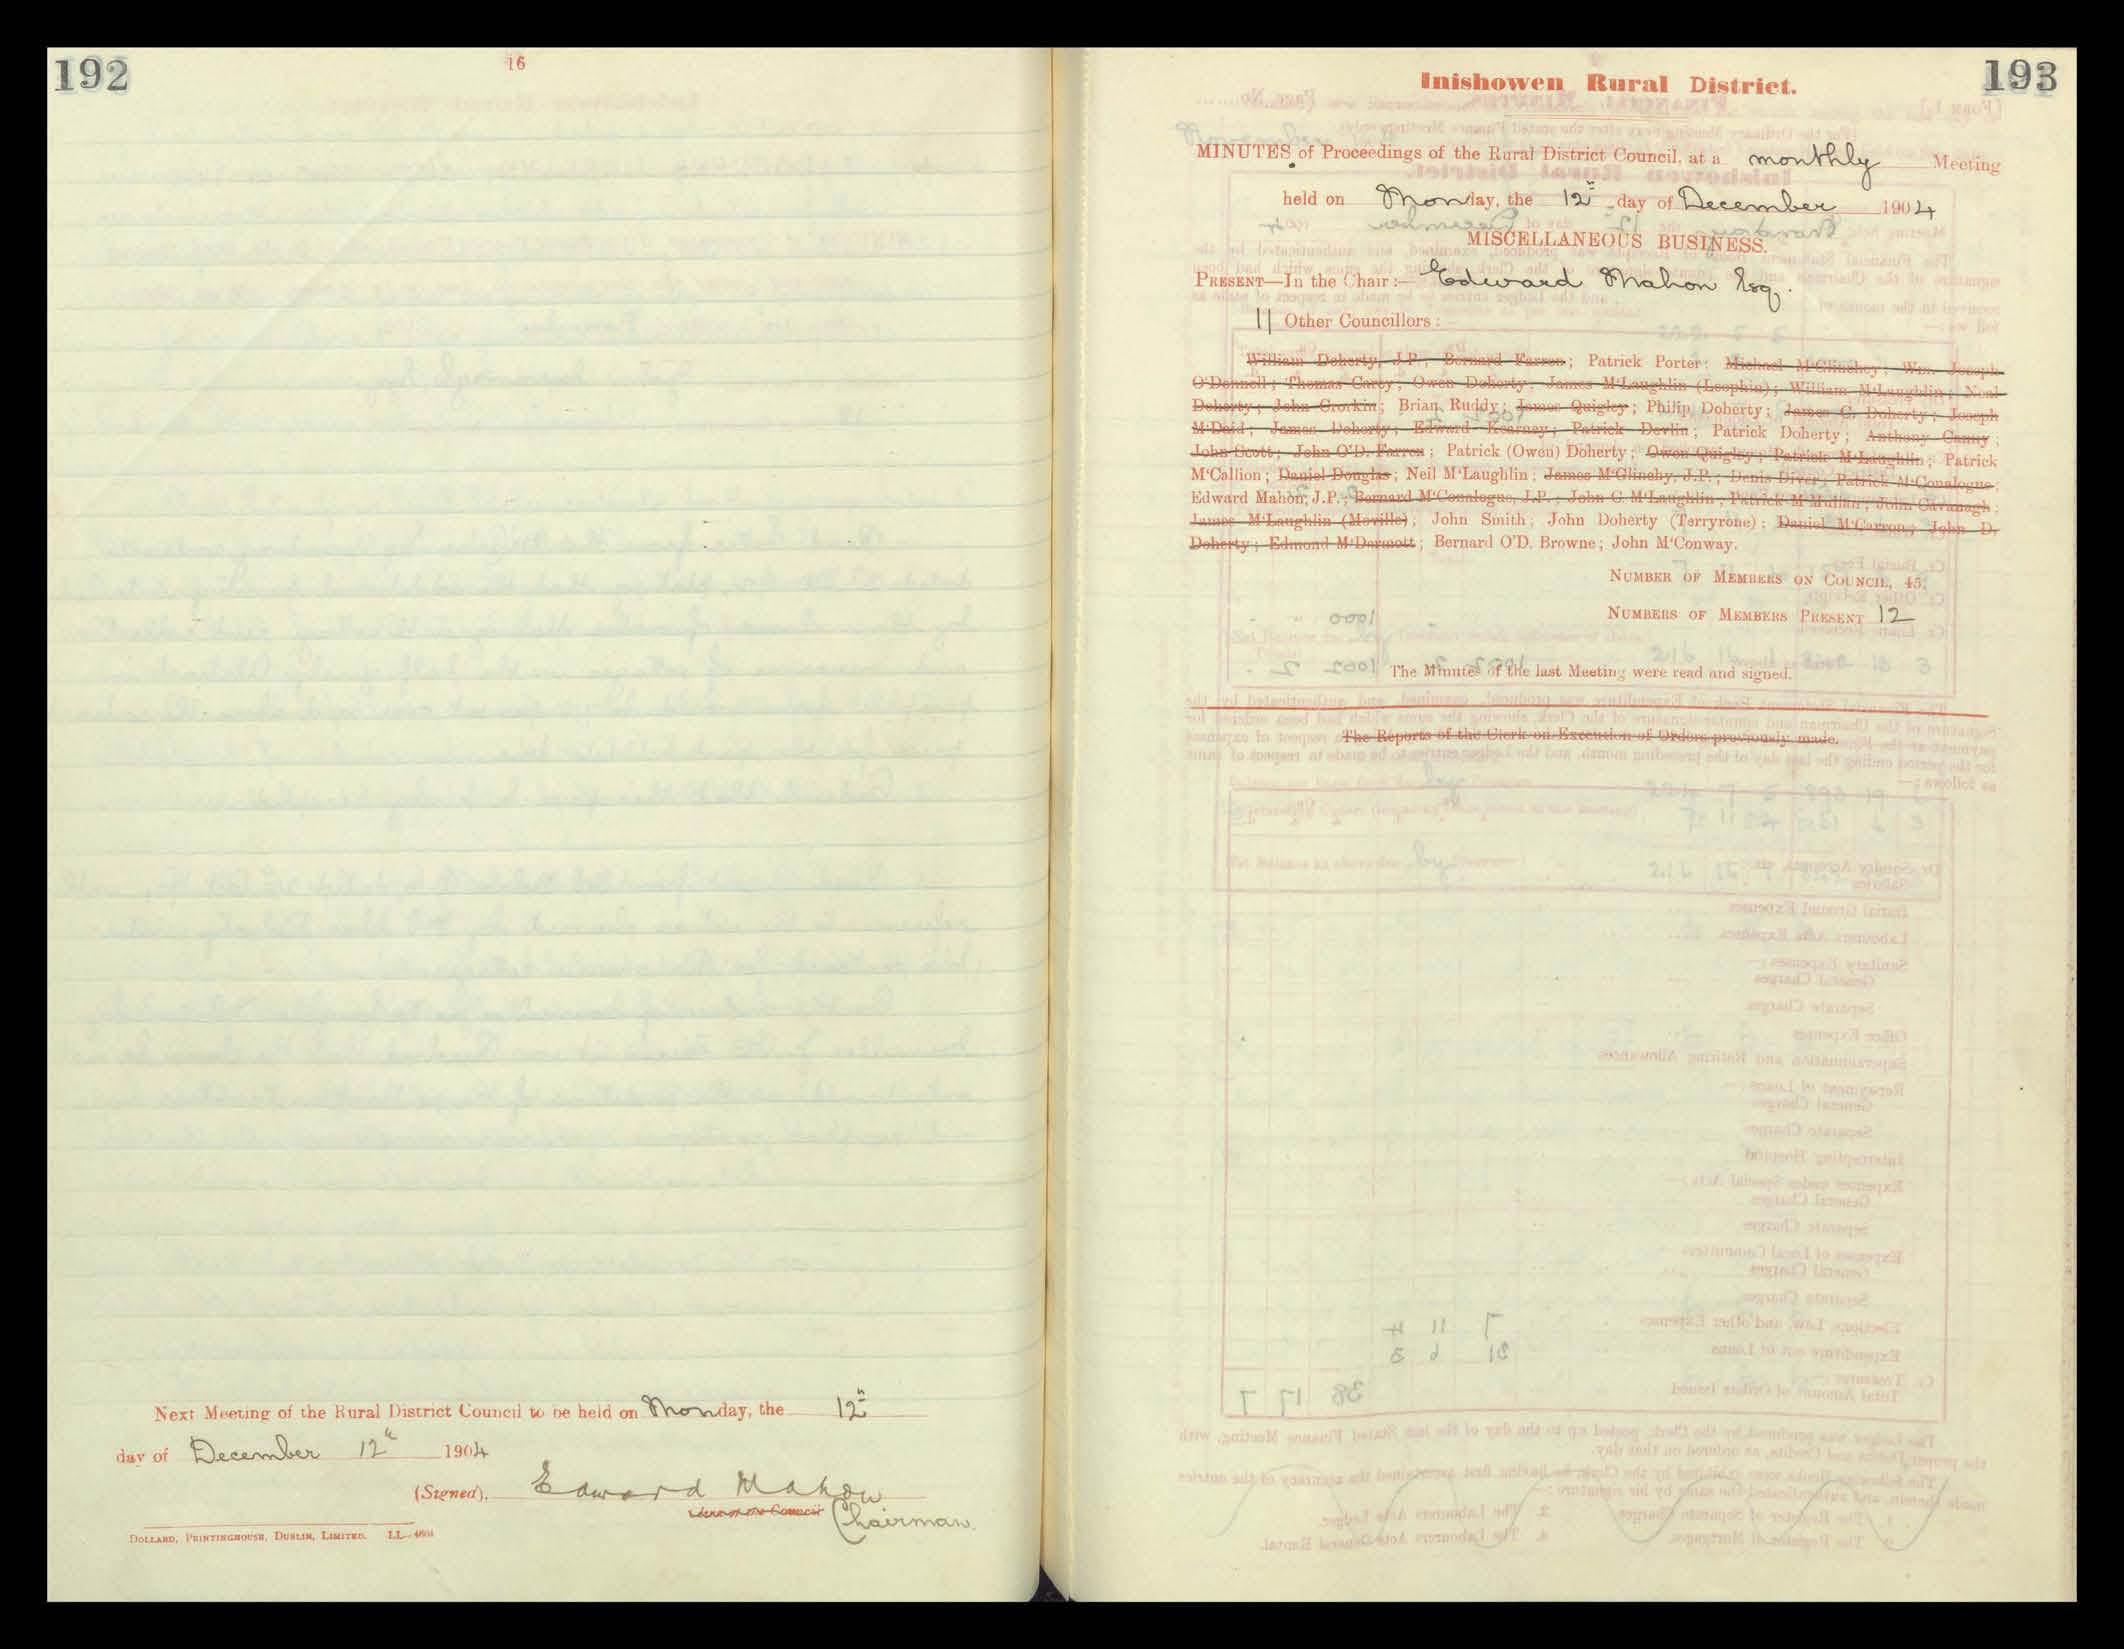 192
16
Next Meeting of the Rural District Council to be held on Monday, the 12th
day of December 12th 1904
(Signed), Edward Mahon
Clerk of the Council Chairman.
DOLLARD, PRINTINGHOUSE, DUBLIN, LIMITED.
193
Inishowen Rural District.
MINUTES of Proceedings of the Rural District Council, at a monthly Meeting
held on Monday, the 12th day of December 1904
MISCELLANEOUS BUSINESS.
PRESENT—In the Chair :— Edward Mahon Esq.
11 Other Councillors :
William Doherty, J.P.; Bernard Farren; Patrick Porter; Michael M'Glinchey; Wm. Joseph
O'Donnell; Thomas Carty; Owen Doherty; James M'Laughlin (Leophin); William M'Laughlin; Neal
Doherty; John Crorkin; Brian Ruddy; James Quigley; Philip Doherty; James C. Doherty; Joseph
M'Daid; James Doherty; Edward Kearney; Patrick Devlin; Patrick Doherty; Anthony Canny;
John Scott; John O'D. Farren; Patrick (Owen) Doherty; Owen Quigley; Patrick M'Laughlin; Patrick
M'Callion; Daniel Douglas; Neil M'Laughlin; James M'Glinchy, J.P.; Denis Diver; Patrick M'Conalogue;
Edward Mahon, J.P.; Bernard M'Conalogue, J.P.; John C. M'Laughlin; Patrick M'Mullan; John Cavanagh;
James M'Laughlin (Moville); John Smith; John Doherty (Terryrone); Daniel M'Carron; John D.
Doherty; Edmond M'Dermott; Bernard O'D. Browne; John M'Conway.
NUMBER OF MEMBERS ON COUNCIL, 45.
NUMBERS OF MEMBERS PRESENT 12
The Minutes of the last Meeting were read and signed.
The Reports of the Clerk on Execution of Orders previously made.